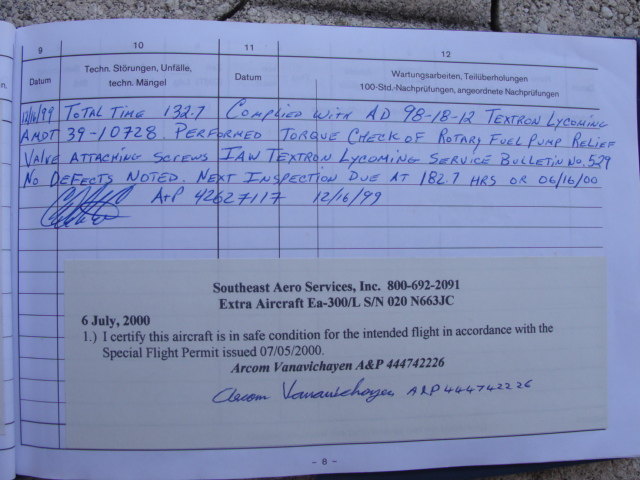 9 10 11 12
Datum Techn. Störungen, Unfälle, techn. Mängel Datum Wartungsarbeiten, Teilüberholungen
100-Std.-Nachprüfungen, angeordnete Nachprüfungen
12/16/99 TOTAL TIME 132.7 COMPLIED WITH AD 98-18-12 TEXTRON LYCOMING
AMDT 39-10728. PERFORMED TORQUE CHECK OF ROTARY FUEL PUMP RELIEF
VALVE ATTACHING SCREWS IAW TEXTRON LYCOMING SERVICE BULLETIN NO. 529
NO DEFECTS NOTED. NEXT INSPECTION DUE AT 182.7 HRS OR 06/16/00
A+P 42627117 12/16/99
Southeast Aero Services, Inc. 800-692-2091
Extra Aircraft Ea-300/L S/N 020 N663JC
6 July, 2000
1.) I certify this aircraft is in safe condition for the intended flight in accordance with the
Special Flight Permit issued 07/05/2000.
Arcom Vanavichayen A&P 444742226
Arcom Vanavichayen A&P 444742226
- 8 -